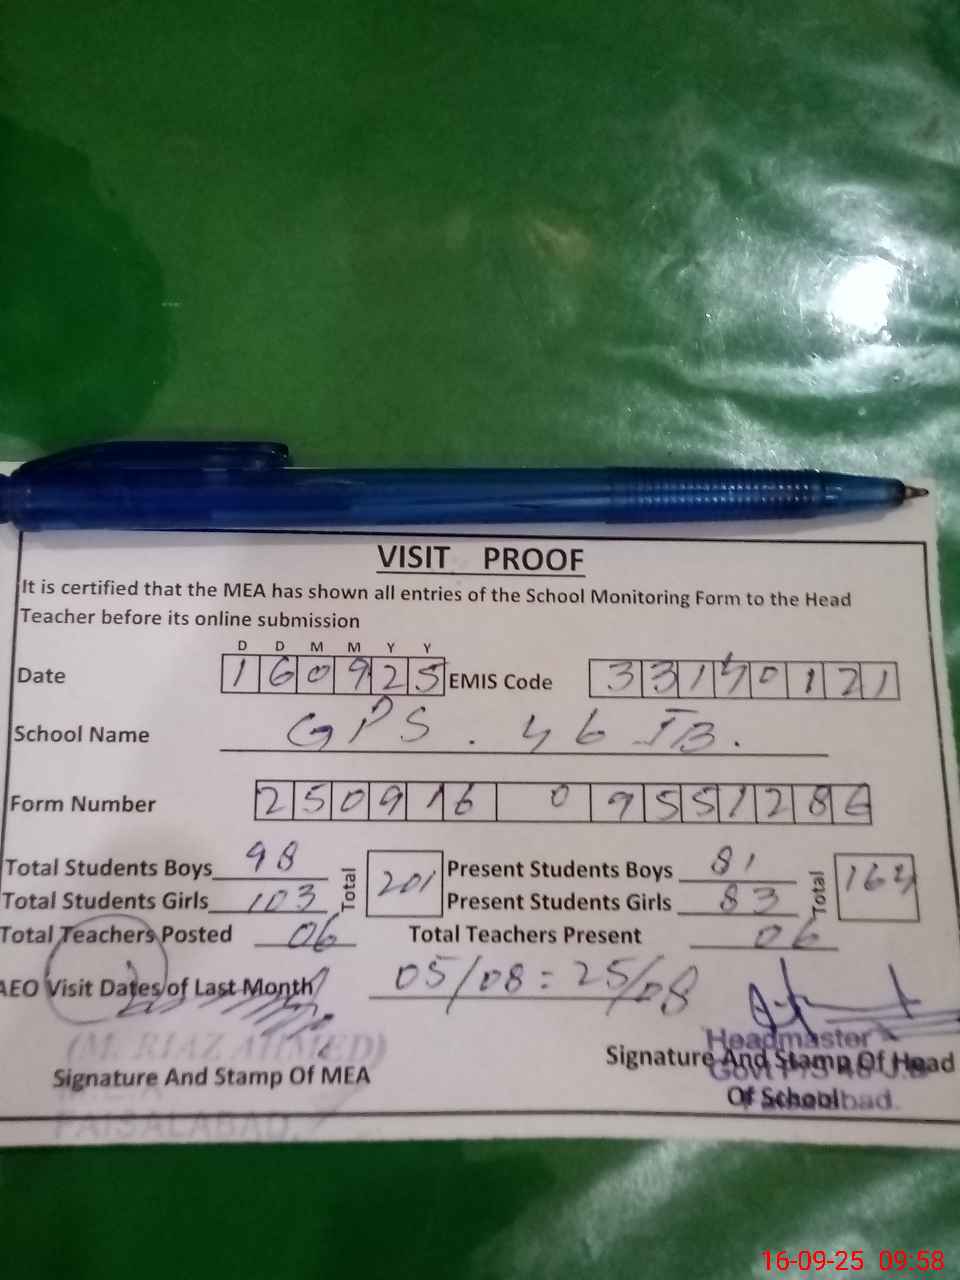 VISIT PROOF
It is certified that the MEA has shown all entries of the School Monitoring Form to the Head
Teacher before its online submission
D D M M Y Y
Date 160925 EMIS Code 33140121
School Name GPS. 46 JB.
Form Number 250916 09551286
Total Students Boys 98 Total 201 Present Students Boys 81 Total 164
Total Students Girls 103 Present Students Girls 83
Total Teachers Posted 06 Total Teachers Present 06
AEO Visit Dates of Last Month 05/08 : 25/08
(M. RIAZ AHMED)
Signature And Stamp Of MEA
FAISALABAD.
Headmaster
Signature And Stamp Of Head
Of School
16-09-25 09:58